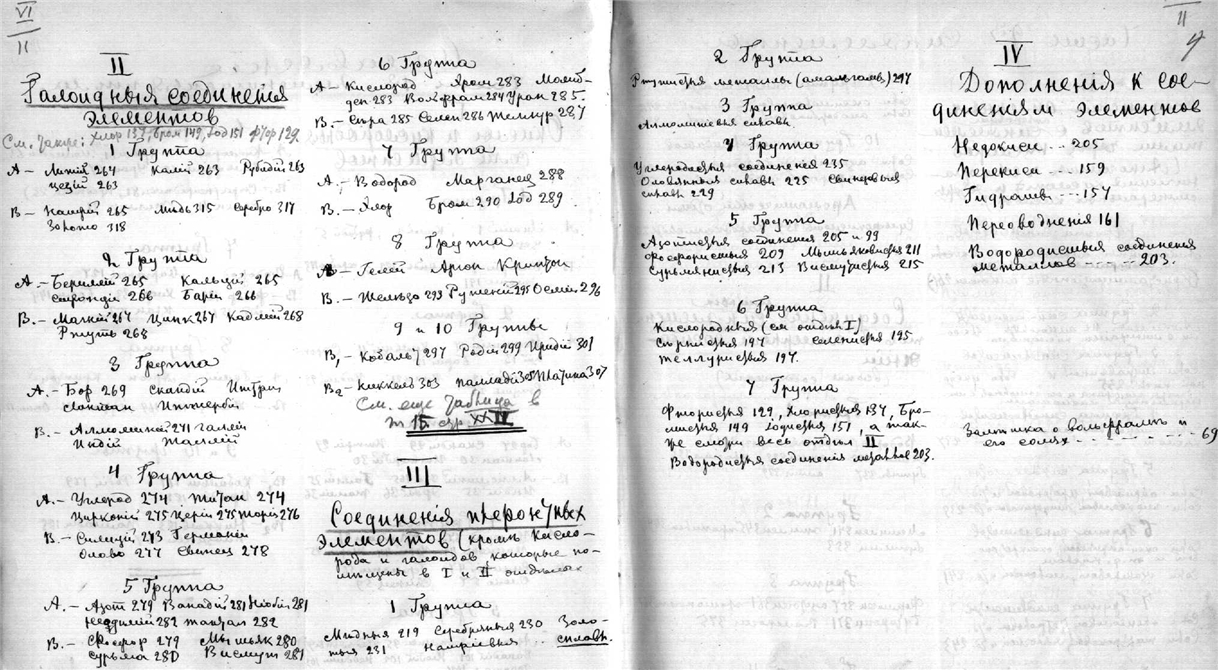 VI
II
II
Галоидныя соединенія
элементов
См. также: хлор 137, бром 149, Iод 151 фтор 129.
1 Группа
А – Литій 264 Калій 263 Рубидій 263
Цезій 263
В – Натрій 265 Медь 315 Серебро 317
Золото 318
2 Группа
А. – Берилій 265 Кальцій 265
стронцій 266 Барій 266
В. – Магній 267 Цинк 267 Кадмій 268
Ртуть 268
3 Группа
А. – Бор 269 Скандій Иттрій
Лантан Иттербій
В. – Аллюминій 271 галлій
Индій Таллій
4 Группа
А. – Углерод 274 Титан 274
Цирконій 275 Церій 275 Торій 276
В – Силицій 273 Германій
Олово 277 Свинец 278
5 Группа
А. – Азот 279 Ванадій 281 Ніобій 281
Неодимій 282 тантал 282
В – Фосфор 279 Мышьяк 280
сурьма 280 Висмут 281
6 Группа
А – Кислород Хром 283 Молиб-
ден 283 Вольфрам 284 Уран 285.
В. – Сера 285 Селен 286 Теллур 287
7 Группа
А. – Водород Марганец 288
В. – Хлор Бром 290 Iод 289
8 Группа
– Гелій Аргон Криптон
В. – Железо 293 Рутеній 295 Осмій 296
9 и 10 Группы
В, – Кобальт 297 Родій 299 Иридій 301
В2 – Никкель 303 палладій 305 Платина 307
См. еще таблицу в
т II стр XXIV
III
Соединенія
элементов (кроме кисло-
рода и галоидов которые по-
мещены в I и II отделах
1 Группа
Медныя 219 Серебряныя 230 Золо-
тыя 231 Натріевыя сплавы.
II
2 Группа
Ртутистыя металлы (амальгамы) 247
3 Группа
Аллюминіевые сплавы
4 Группа
Углеродистыя соединенія 235
Оловянные сплавы 225 Свинцовые
сплавы 229
5 Группа
Азотистыя соединенія 205 и 99
Фосфористыя 209 Мышьяковистыя 211
Сурьмянистыя 213 Висмутистыя 215
6 Группа
Кислородныя (см отдел I)
Сернистыя 197 Селенистыя 195
Теллуристыя 197.
7 Группа
Фтористыя 129, Хлористыя 137, Бро-
мистыя 149 Iодистыя 151, а так-
же смотри весь отдел II
Водородистыя соединенія металлов 203.
IV
Дополненія к сое-
диненіям элементов
Недокиси ... 205
Перекиси ... 159
Гидраты ... 157
Переводненія 161
Водородистыя соединенія
металлов ----- 203.
Заметка о вольфраме и
его солях ---------- 69